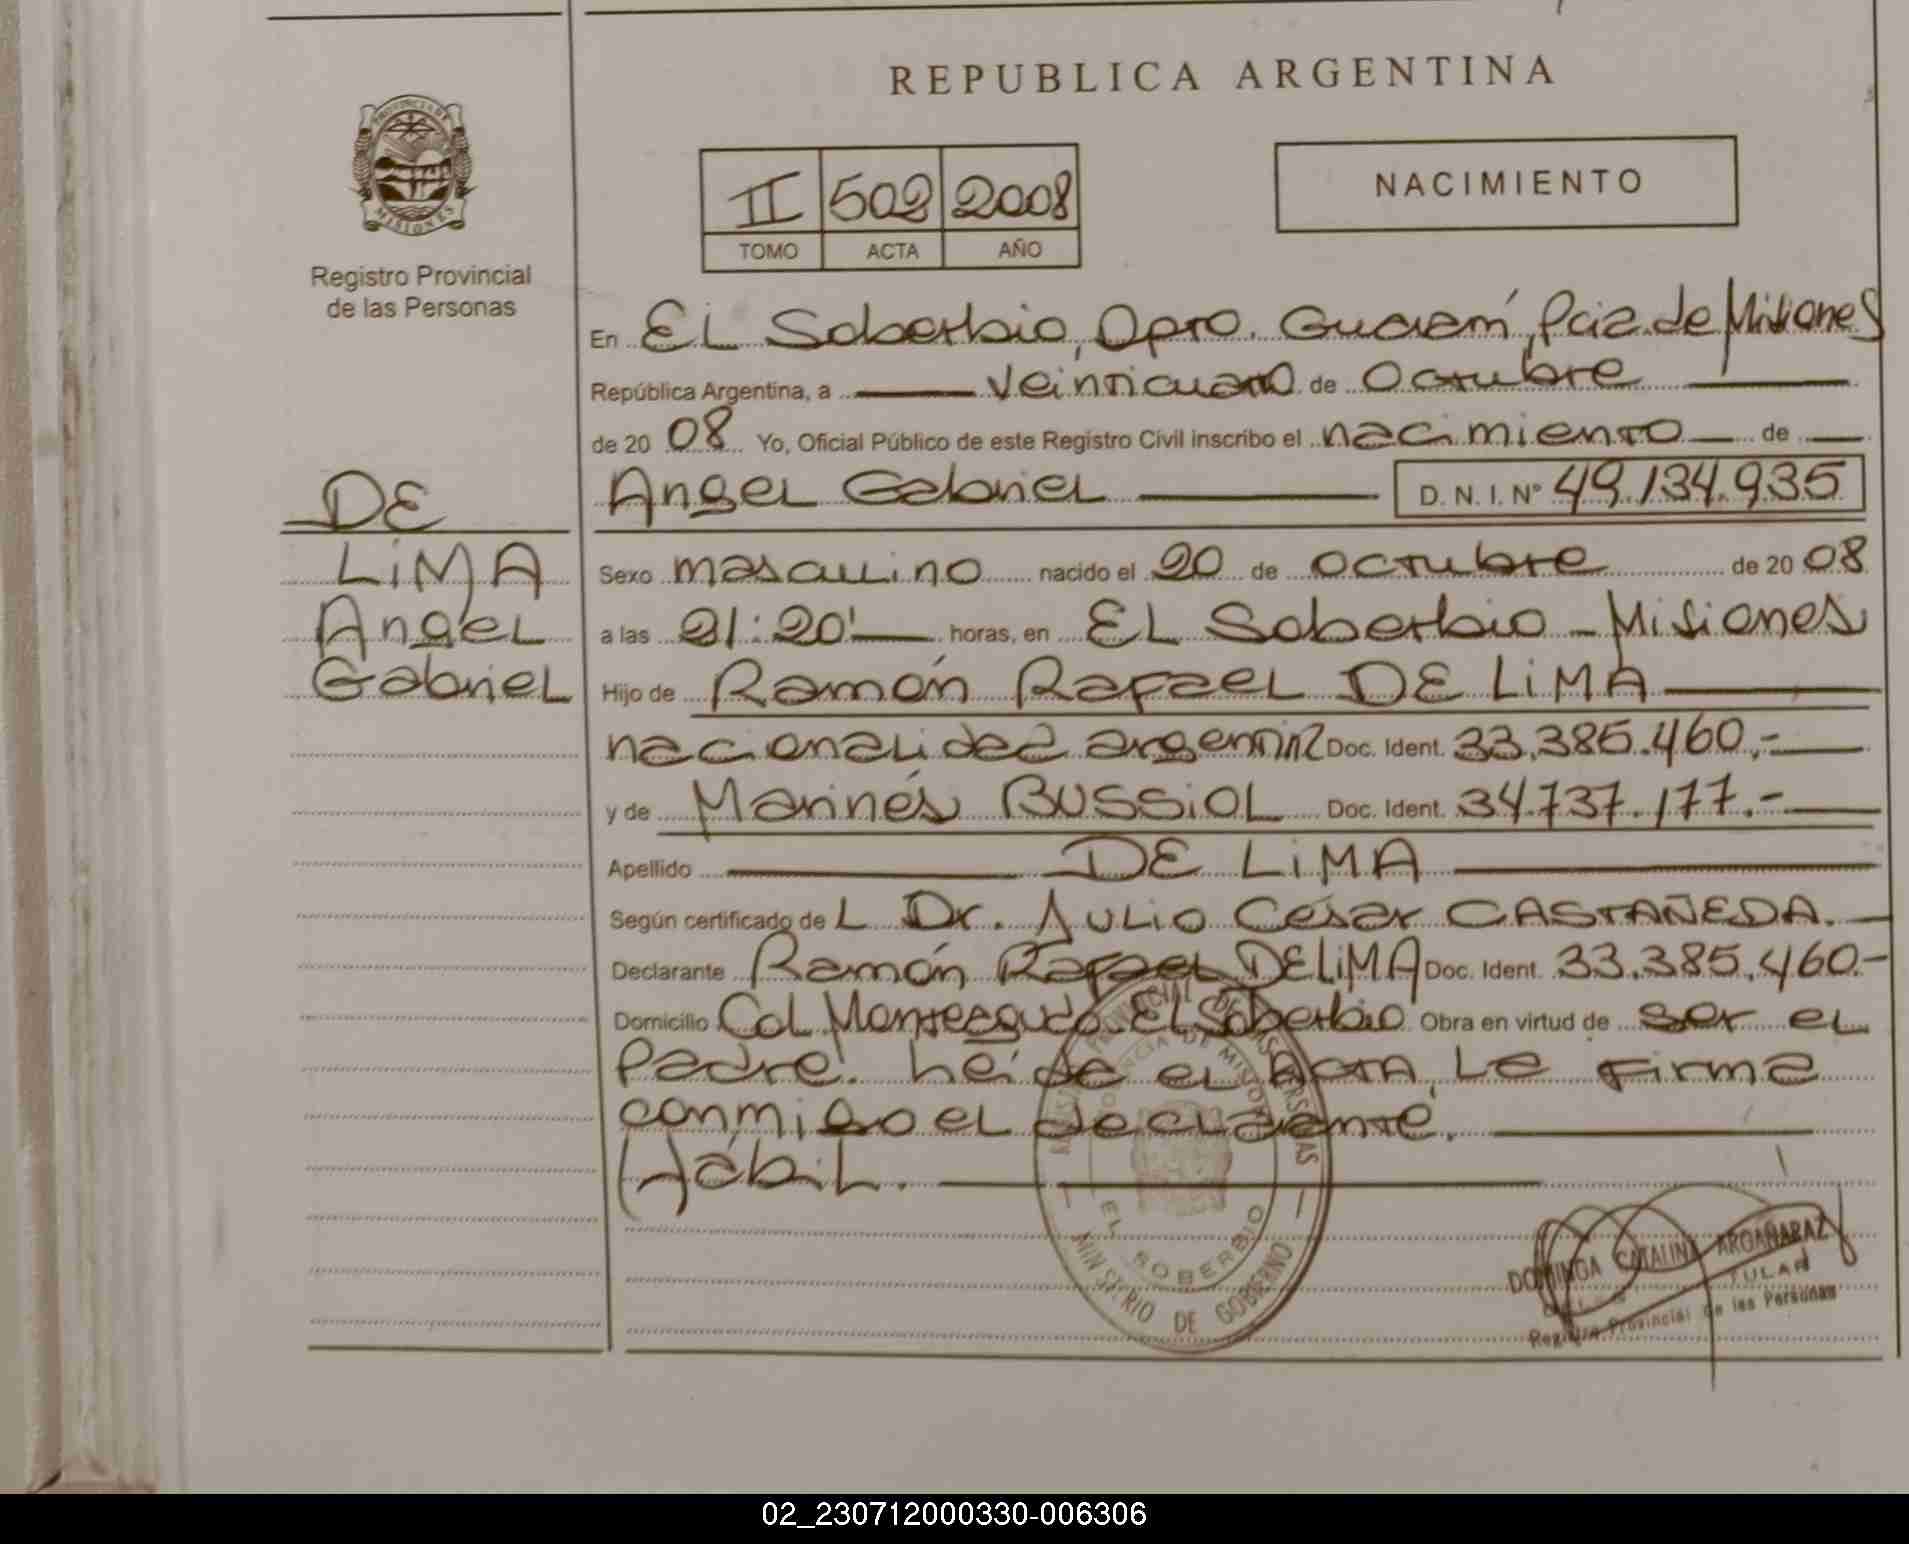 REPUBLICA ARGENTINA
PROVINCIA DE
MISIONES
Registro Provincial
de las Personas
II 502 2008
TOMO ACTA AÑO
NACIMIENTO
En El Soberbio, Dpto. Guaraní, Pcia de Misiones
República Argentina, a veinticuatro de Octubre
de 2008 Yo, Oficial Público de este Registro Civil inscribo el nacimiento de
Angel Gabriel D. N. I. N° 49.134.935
DE
LiMA
Angel
Gabriel
Sexo masculino nacido el 20 de octubre de 2008
a las 21:20' horas, en El Soberbio - Misiones
Hijo de Ramón Rafael DE LiMA
nacionalidad argentina Doc. Ident. 33.385.460.-
y de Marinés BUSSiOL Doc. Ident. 34.737.177.-
Apellido DE LiMA
Según certificado de L Dr. Julio César CASTAÑEDA.
Declarante Ramón Rafael DE LiMA Doc. Ident. 33.385.460.-
Domicilio Col. Monteagudo - El Soberbio Obra en virtud de ser el
Padre. Leída el Acta, la firma
conmigo el declarante.
Hábil.
PROVINCIA DE MISIONES
EL SOBERBIO
MINISTERIO DE GOBIERNO
DOMINGA CATALINA ARGAÑARAZ
Registro Provincial de las Personas
02_230712000330-006306